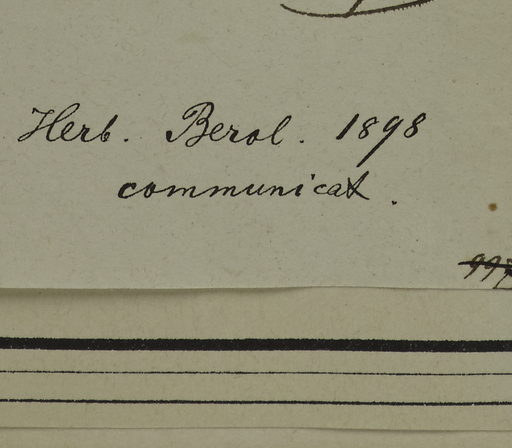 Herb. Berol. 1898
communicat.